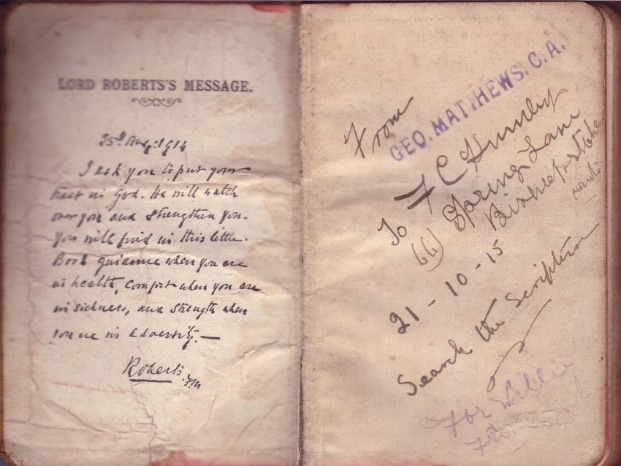 LORD ROBERTS'S MESSAGE.
25th Aug: 1914
I ask you to put your
trust in God. He will watch
over you and strengthen you.
You will find in this little
Book guidance when you are
in health, comfort when you are
in sickness, and strength when
you are in adversity.—
Roberts. F.M
From
GEO. MATTHEWS. C. A.
To F C
66 Spring Lane
Bishopstoke
Hants
21-10-15
Search the Scriptures
For